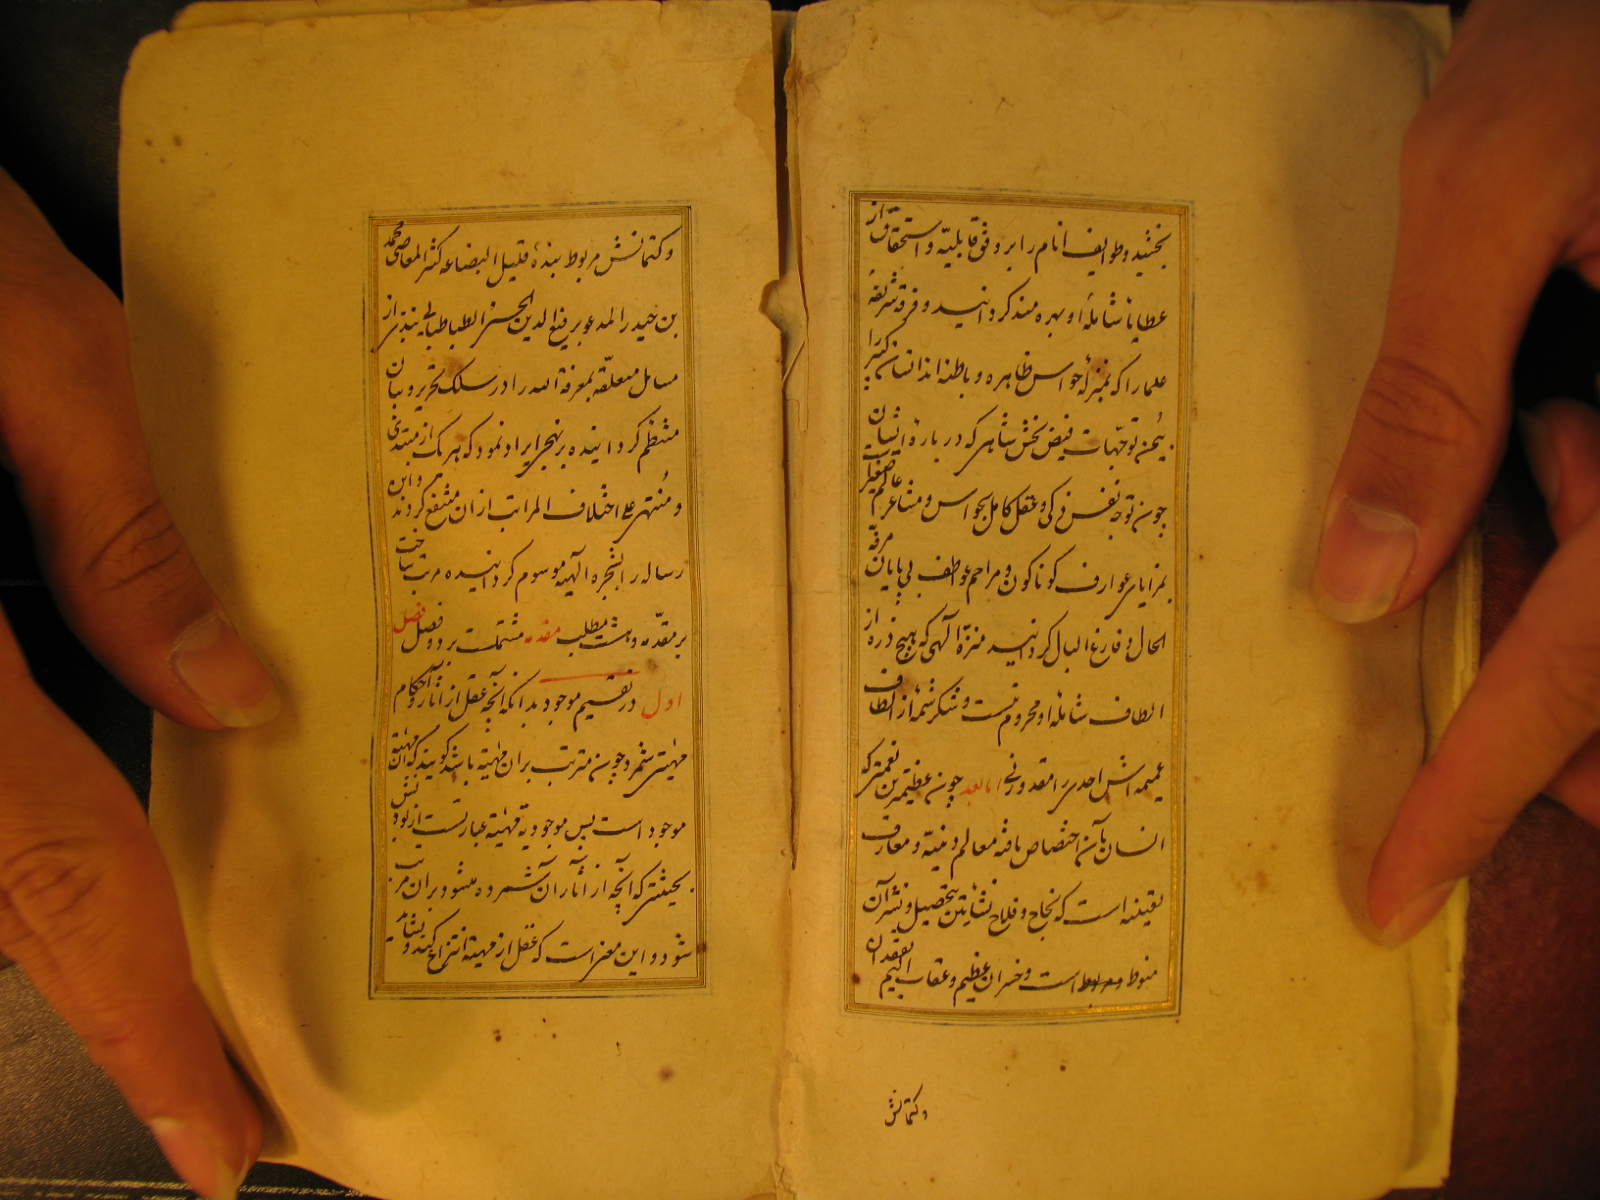 بخشید و طوایف انام را بر وفق قابلیّه و استحقاق از
عطایا شاملهٔ او بهره مند کردانید و فرقه شریفهٔ
علما را که بمنزلهٔ حواس ظاهره و باطنه اند انسان کبیر را
بیُمن توجّهات فیض بخش شاهی که در بارهٔ ایشان
چون توجه نفس ذکی و عقل کامل بحواس و مشاعر عالم صغیر است
بمزایای عوارف کوناکون و مراحم عواطف بی پایان مرفّه
الحال و فارغ البال کردانید منزه آلهی که هیچ ذره از
الطاف شاملهٔ او محروم نیست و شکر شمهٔ از الطاف
عمیمه اش احدی را مقدور نی اما بعد چون عظیمترین نعمتی که
انسان بآن اختصاص یافته معالم دینیّه و معارف
یقینیه است که نجاح و فلاح نشاتین بتحصیل و نشر آن
منوط مربوط است و خسران عظیم و عقاب الیم بفقدان
و کتمانش
و کتمانش مربوط بندهٔ قلیل البضاعه کثیر المعاصی محمد
بن حیدر المدعو برفیع الدین الحسینی الطباطبایی نبذی از
مسایل متعلقه بمعرفة الله را در سلک تحریر و بیان
منتظم کردانیده بر نهجی ایراد نمود که هر یک از مبتدی
و مُنتهی علی اختلاف المراتب از ان منتفع کردند و این
رساله را بشجره آلهیه موسوم کردانیده مرتب ساخت
بر مقدّمه و هشت مطلب مقدمه مشتملست بر دو فصل فصل
اول در تقسیم موجود بدانکه آنچه عقل از آثار و احکام
مهیتی شمرد چون مترتب بر ان مهیّه باشد کویند که آن مهیّه
موجود است پس موجودیة مهیّه عبارتست از بودنش
بحیثیتی که آنچه از آثار ان شمرده میشود بر ان مرتب
شود و این معنی است که عقل از مهیة انتزاع کند و نشاید